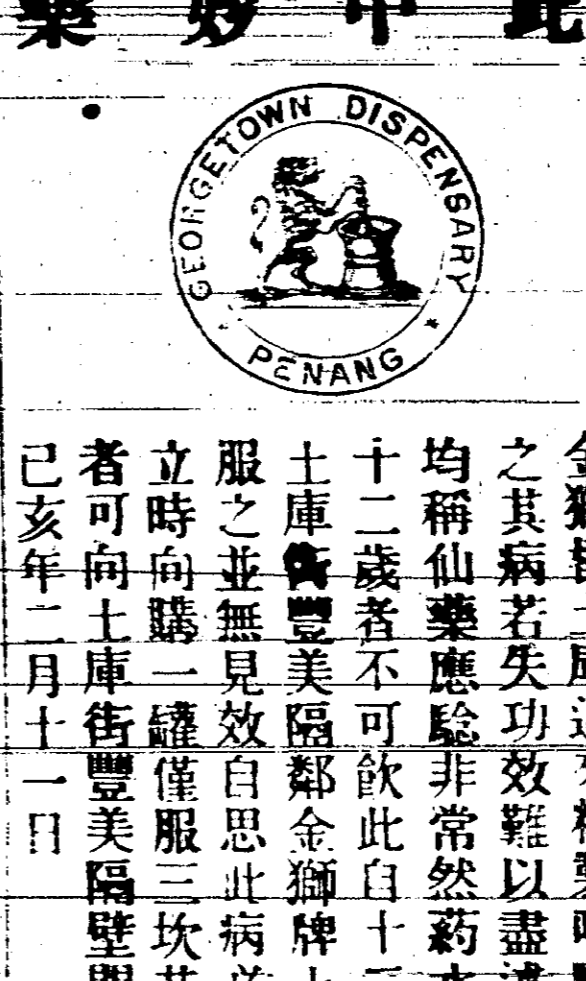 此中妙藥
GEORGETOWN DISPENSARY
PENANG
之其病若失功效難以盡
均稱仙藥應驗非常然葯水
十二歲者不可飲此自十二
土庫街豐美隔鄰金獅牌
服之並無見效自思此病
立時向購一罐僅服三坎
者可向土庫街豐美隔壁
己亥年二月十一日